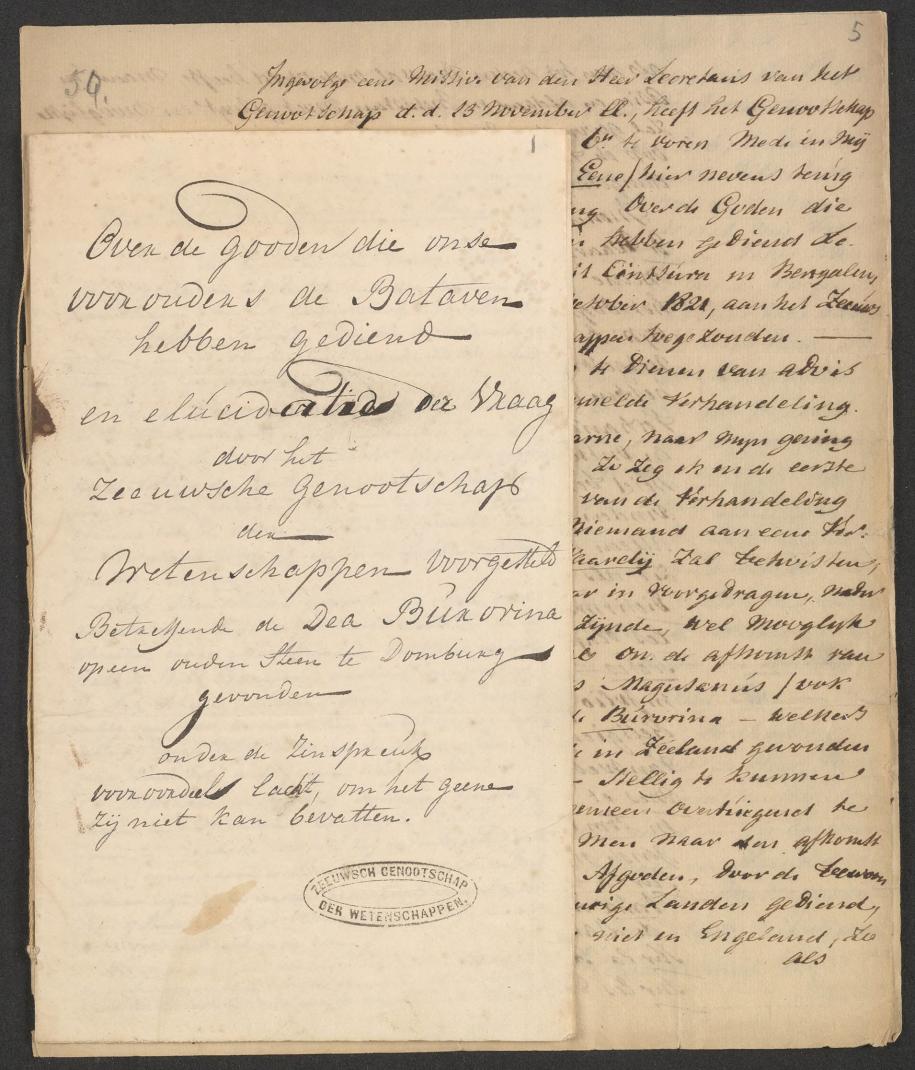 5
59.
Ingevolge eene Missive van den Heer Secretaris van het
Genootschap d. d. 13 November ll., heeft het Genootschap
te voren Mede in Mij
Eene / hier nevens terug
ng Over de Goden die
hebben gediend
it Cinsura in Bengalen,
ctober 1821, aan het Zeeuws
appen toegezonden. —
te Dienen van advis
emelde Verhandeling.
arne, naar mijn gering
Zo Zeg ik in de eerste
van de Verhandeling
Niemand aan eene Ver-
Zal betwisten,
ar in voorgedragen,
Zijnde, wel mooglijk
de afkomst van
s Magusanús / ook
Búrorina — welkers
in Zeeland gevonden
Stellig te kunnen
emeen overtúigend te
Men naar den afkomst
Afgoden, Door de
urige Landen gediend,
niet in Engeland,
als
1
Over de gooden die onse
voorouders de Bataven
hebben gediend
en elúcidatie der Vraag
door het
Zeeuwsche Genootschap
der
Wetenschappen Voorgesteld
Betreffende de Dea Búrorina
op een ouden Steen te Domburg
gevonden
onder de Zinspreuk
vooroordeel lacht, om het geene
Zij niet kan bevatten.
ZEEUWSCH GENOOTSCHAP
DER WETENSCHAPPEN.